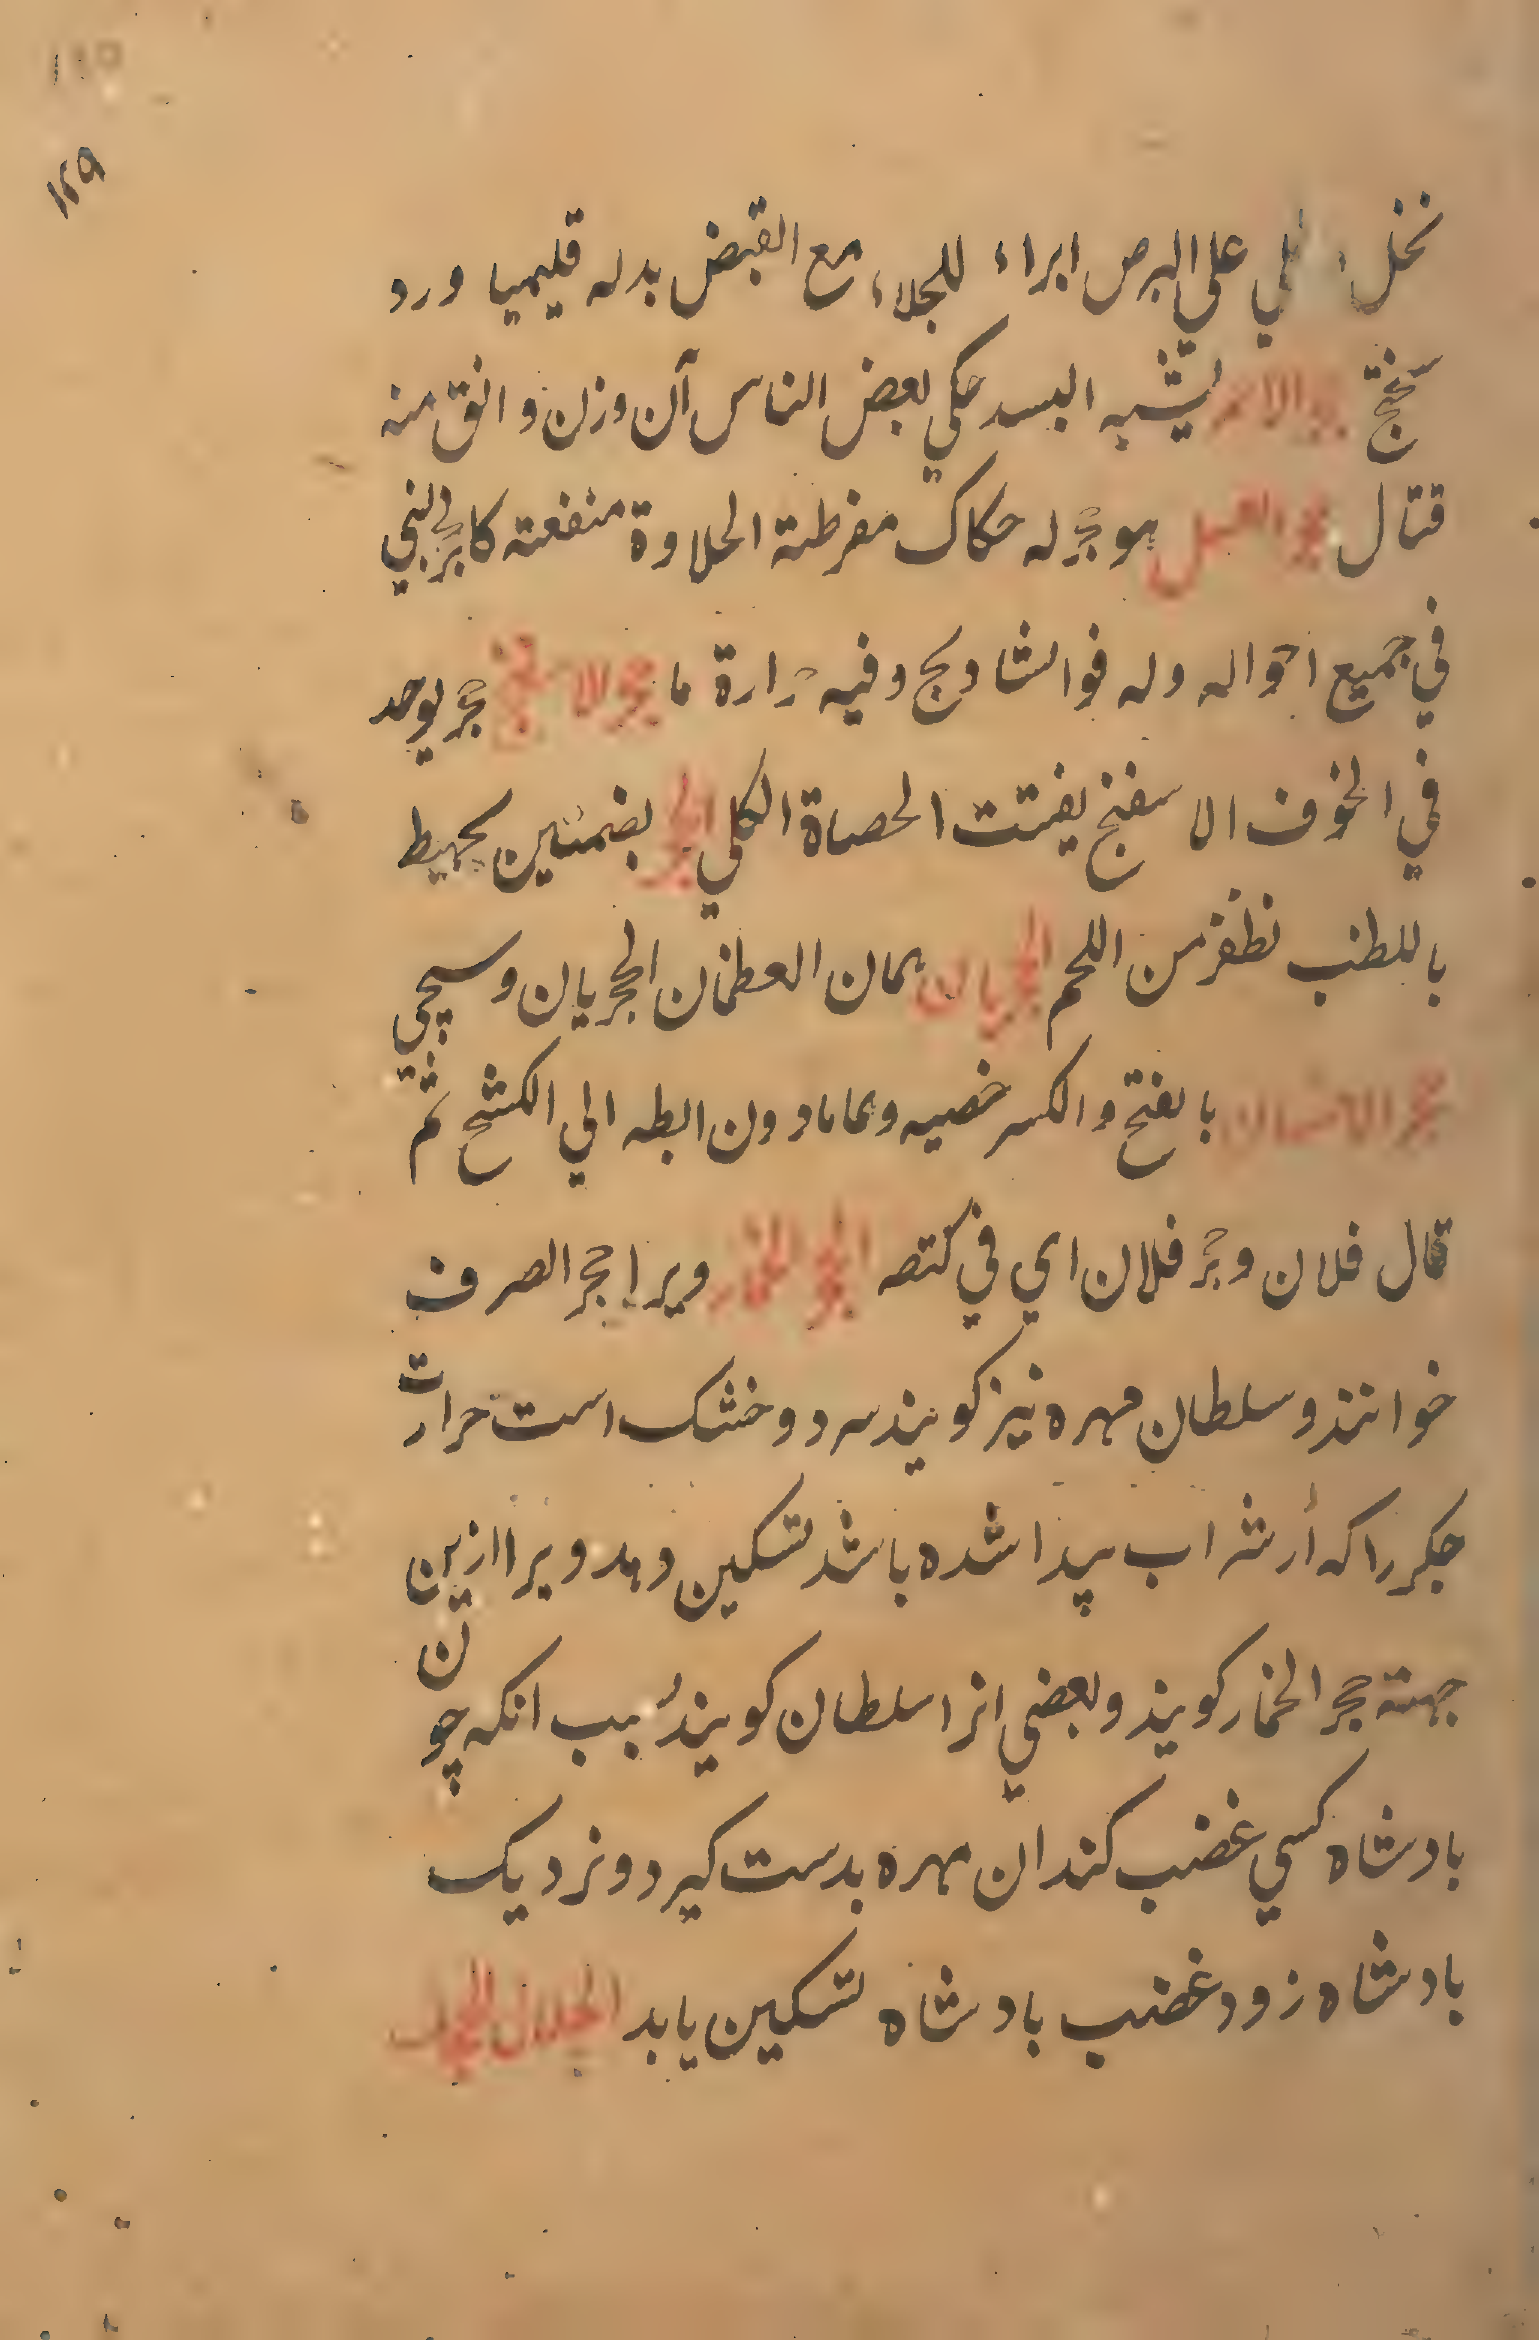 ۱۲۹
نخل علي البرص ابراء للجلاء مع القبض بدله قليميا ورد
سختج حجر الاحمر يشبه البسد حكي بعض الناس آن وزن دانق منه
قتال حجر العسل هو حجر له حكاك مفرطة الحلاوة منفعته كالحجر اللبني
في جميع احواله وله قوا لشادنج وفيه حرارة ما حجر الاسفنج حجر يوجد
في الخوف الاسفنج يفتت الحصاة الكلي الحجر بضمتين يحيط
باللطنب نظفر من اللحم الحجريان بمان العطمان الحجريان وسيجي
حجر الانسان بالفتح والكسر خصيه وما مادون ابطه الي الكشح ثم
قال فلان وحجر فلان اي في كتصه الحجر الخمار ويرا حجر الصرف
خوانند و سلطان مهره نيز كويند سرد و خشك است حرارت
جكر را كه أر شراب پيدا شده باشد تسكين دهد ويرا ازين
جهته حجر الخمار كويند وبعضي انرا سلطان كويند سبب انكه چون
بادشاه كسي غضب كند ان مهره بدست كيرد و نزديك
بادشاه زود غضب بادشاه تسكين يابد